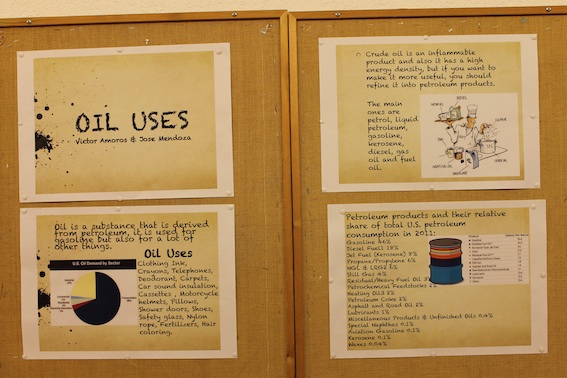 OIL USES
Victor Amoros & Jose Mendoza
Oil is a substance that is derived
from petroleum, it is used for
gasoline but also for a lot of
other things.
U.S. Oil Demand by Sector
Oil Uses
Clothing Ink,
Crayons, Telephones,
Deodorant, Carpets,
Car sound insulation,
Cassettes , Motorcycle
helmets, Pillows,
Shower doors, Shoes,
Safety glass, Nylon
rope, Fertilizers, Hair
coloring.
Crude oil is an inflammable
product and also it has a high
energy density, but if you want to
make it more useful, you should
refine it into petroleum products.
The main
ones are
petrol, liquid
petroleum,
gasoline,
kerosene,
diesel, gas
oil and fuel
oil.
DIESEL
Petroleum products and their relative
share of total U.S. petroleum
consumption in 2011:
Gasoline 46%
Diesel Fuel 19%
Jet Fuel (Kerosene) 8%
Propane/Propylene 6%
NGL & LRGs
Still Gas 4%
Residual/Heavy Fuel Oil
Petrochemical Feedstocks
Heating Oil
Petroleum Coke 2%
Asphalt and Road Oil 2%
Lubricants 1%
Miscellaneous Products & Unfinished Oils 0.4%
Special Naphthas 0.2%
Aviation Gasoline 0.1%
Kerosene 0.1%
Waxes 0.04%